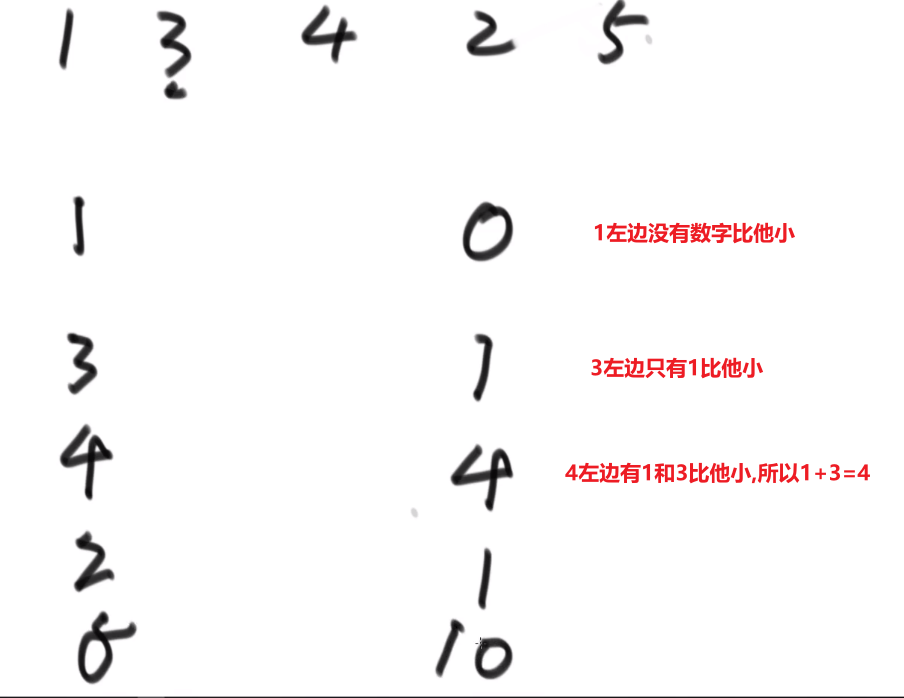 1 3 4 2 5
1 0 1左边没有数字比他小
3 1 3左边只有1比他小
4 4 4左边有1和3比他小,所以1+3=4
2 1
5 10